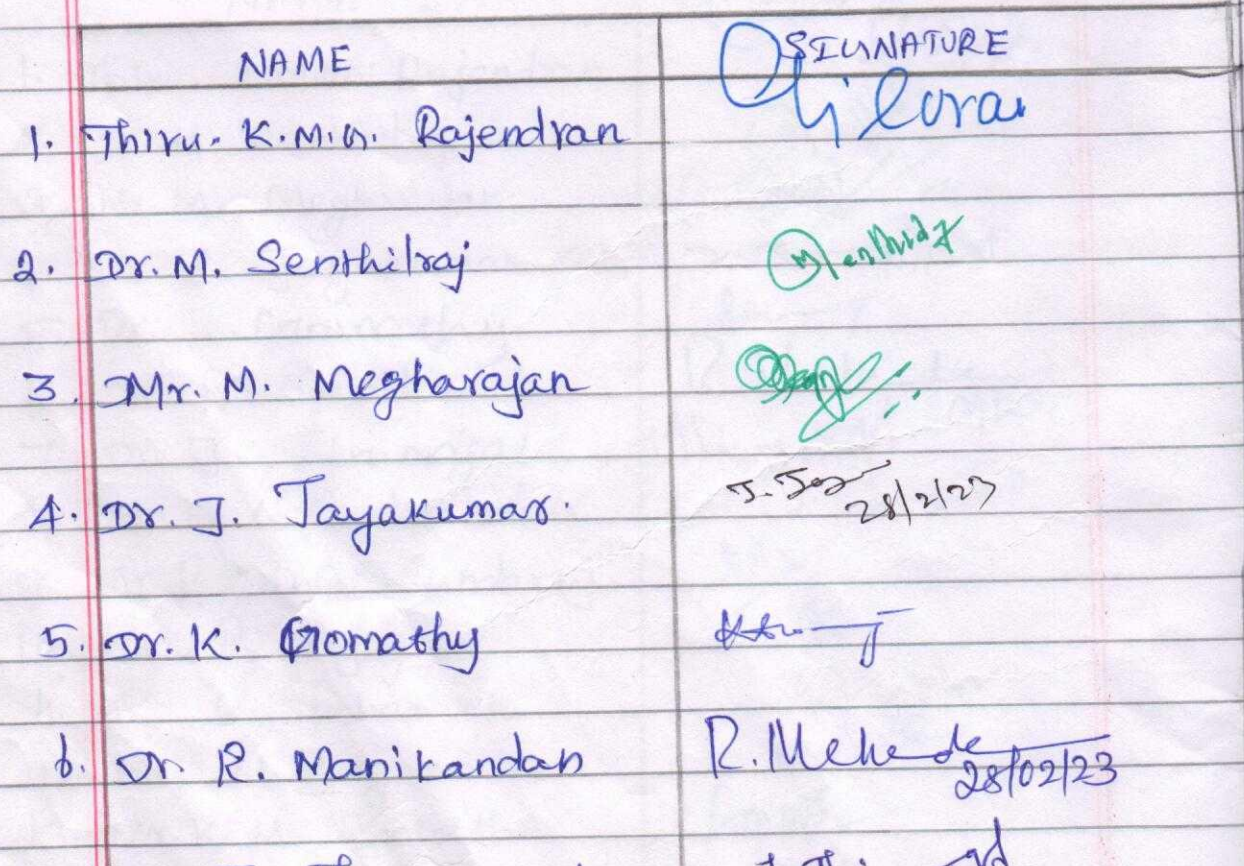 NAME SIGNATURE
1. Thiru. K.M.G. Rajendran
2. Dr. M. Senthilraj
3. Mr. M. Megharajan
4. Dr. J. Jayakumar. 28/2/23
5. Dr. K. Gomathy
6. Dr. R. Manikandan R. 28/02/23